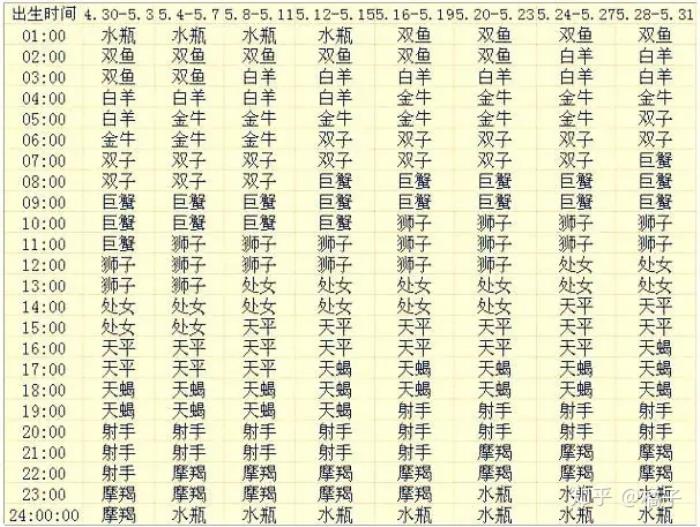 出生时间 4.30-5.3 5.4-5.7 5.8-5.11 5.12-5.15 5.16-5.19 5.20-5.23 5.24-5.27 5.28-5.31
01:00 水瓶 水瓶 水瓶 水瓶 双鱼 双鱼 双鱼 双鱼
02:00 双鱼 双鱼 双鱼 双鱼 双鱼 双鱼 白羊 白羊
03:00 双鱼 双鱼 白羊 白羊 白羊 白羊 白羊 白羊
04:00 白羊 白羊 白羊 白羊 金牛 金牛 金牛 金牛
05:00 白羊 金牛 金牛 金牛 金牛 金牛 金牛 双子
06:00 金牛 金牛 金牛 双子 双子 双子 双子 双子
07:00 双子 双子 双子 双子 双子 双子 双子 巨蟹
08:00 双子 双子 双子 巨蟹 巨蟹 巨蟹 巨蟹 巨蟹
09:00 巨蟹 巨蟹 巨蟹 巨蟹 巨蟹 巨蟹 巨蟹 巨蟹
10:00 巨蟹 巨蟹 巨蟹 巨蟹 狮子 狮子 狮子 狮子
11:00 巨蟹 狮子 狮子 狮子 狮子 狮子 狮子 狮子
12:00 狮子 狮子 狮子 狮子 狮子 狮子 处女 处女
13:00 狮子 狮子 处女 处女 处女 处女 处女 处女
14:00 处女 处女 处女 处女 处女 处女 天平 天平
15:00 处女 处女 天平 天平 天平 天平 天平 天平
16:00 天平 天平 天平 天平 天平 天平 天平 天蝎
17:00 天平 天平 天平 天蝎 天蝎 天蝎 天蝎 天蝎
18:00 天蝎 天蝎 天蝎 天蝎 天蝎 天蝎 天蝎 天蝎
19:00 天蝎 天蝎 天蝎 天蝎 射手 射手 射手 射手
20:00 射手 射手 射手 射手 射手 射手 射手 射手
21:00 射手 射手 射手 射手 射手 摩羯 摩羯 摩羯
22:00 射手 摩羯 摩羯 摩羯 摩羯 摩羯 摩羯 摩羯
23:00 摩羯 摩羯 摩羯 摩羯 摩羯 水瓶 水瓶 水瓶
24:00:00 摩羯 水瓶 水瓶 水瓶 水瓶 水瓶 水瓶 水瓶
知乎